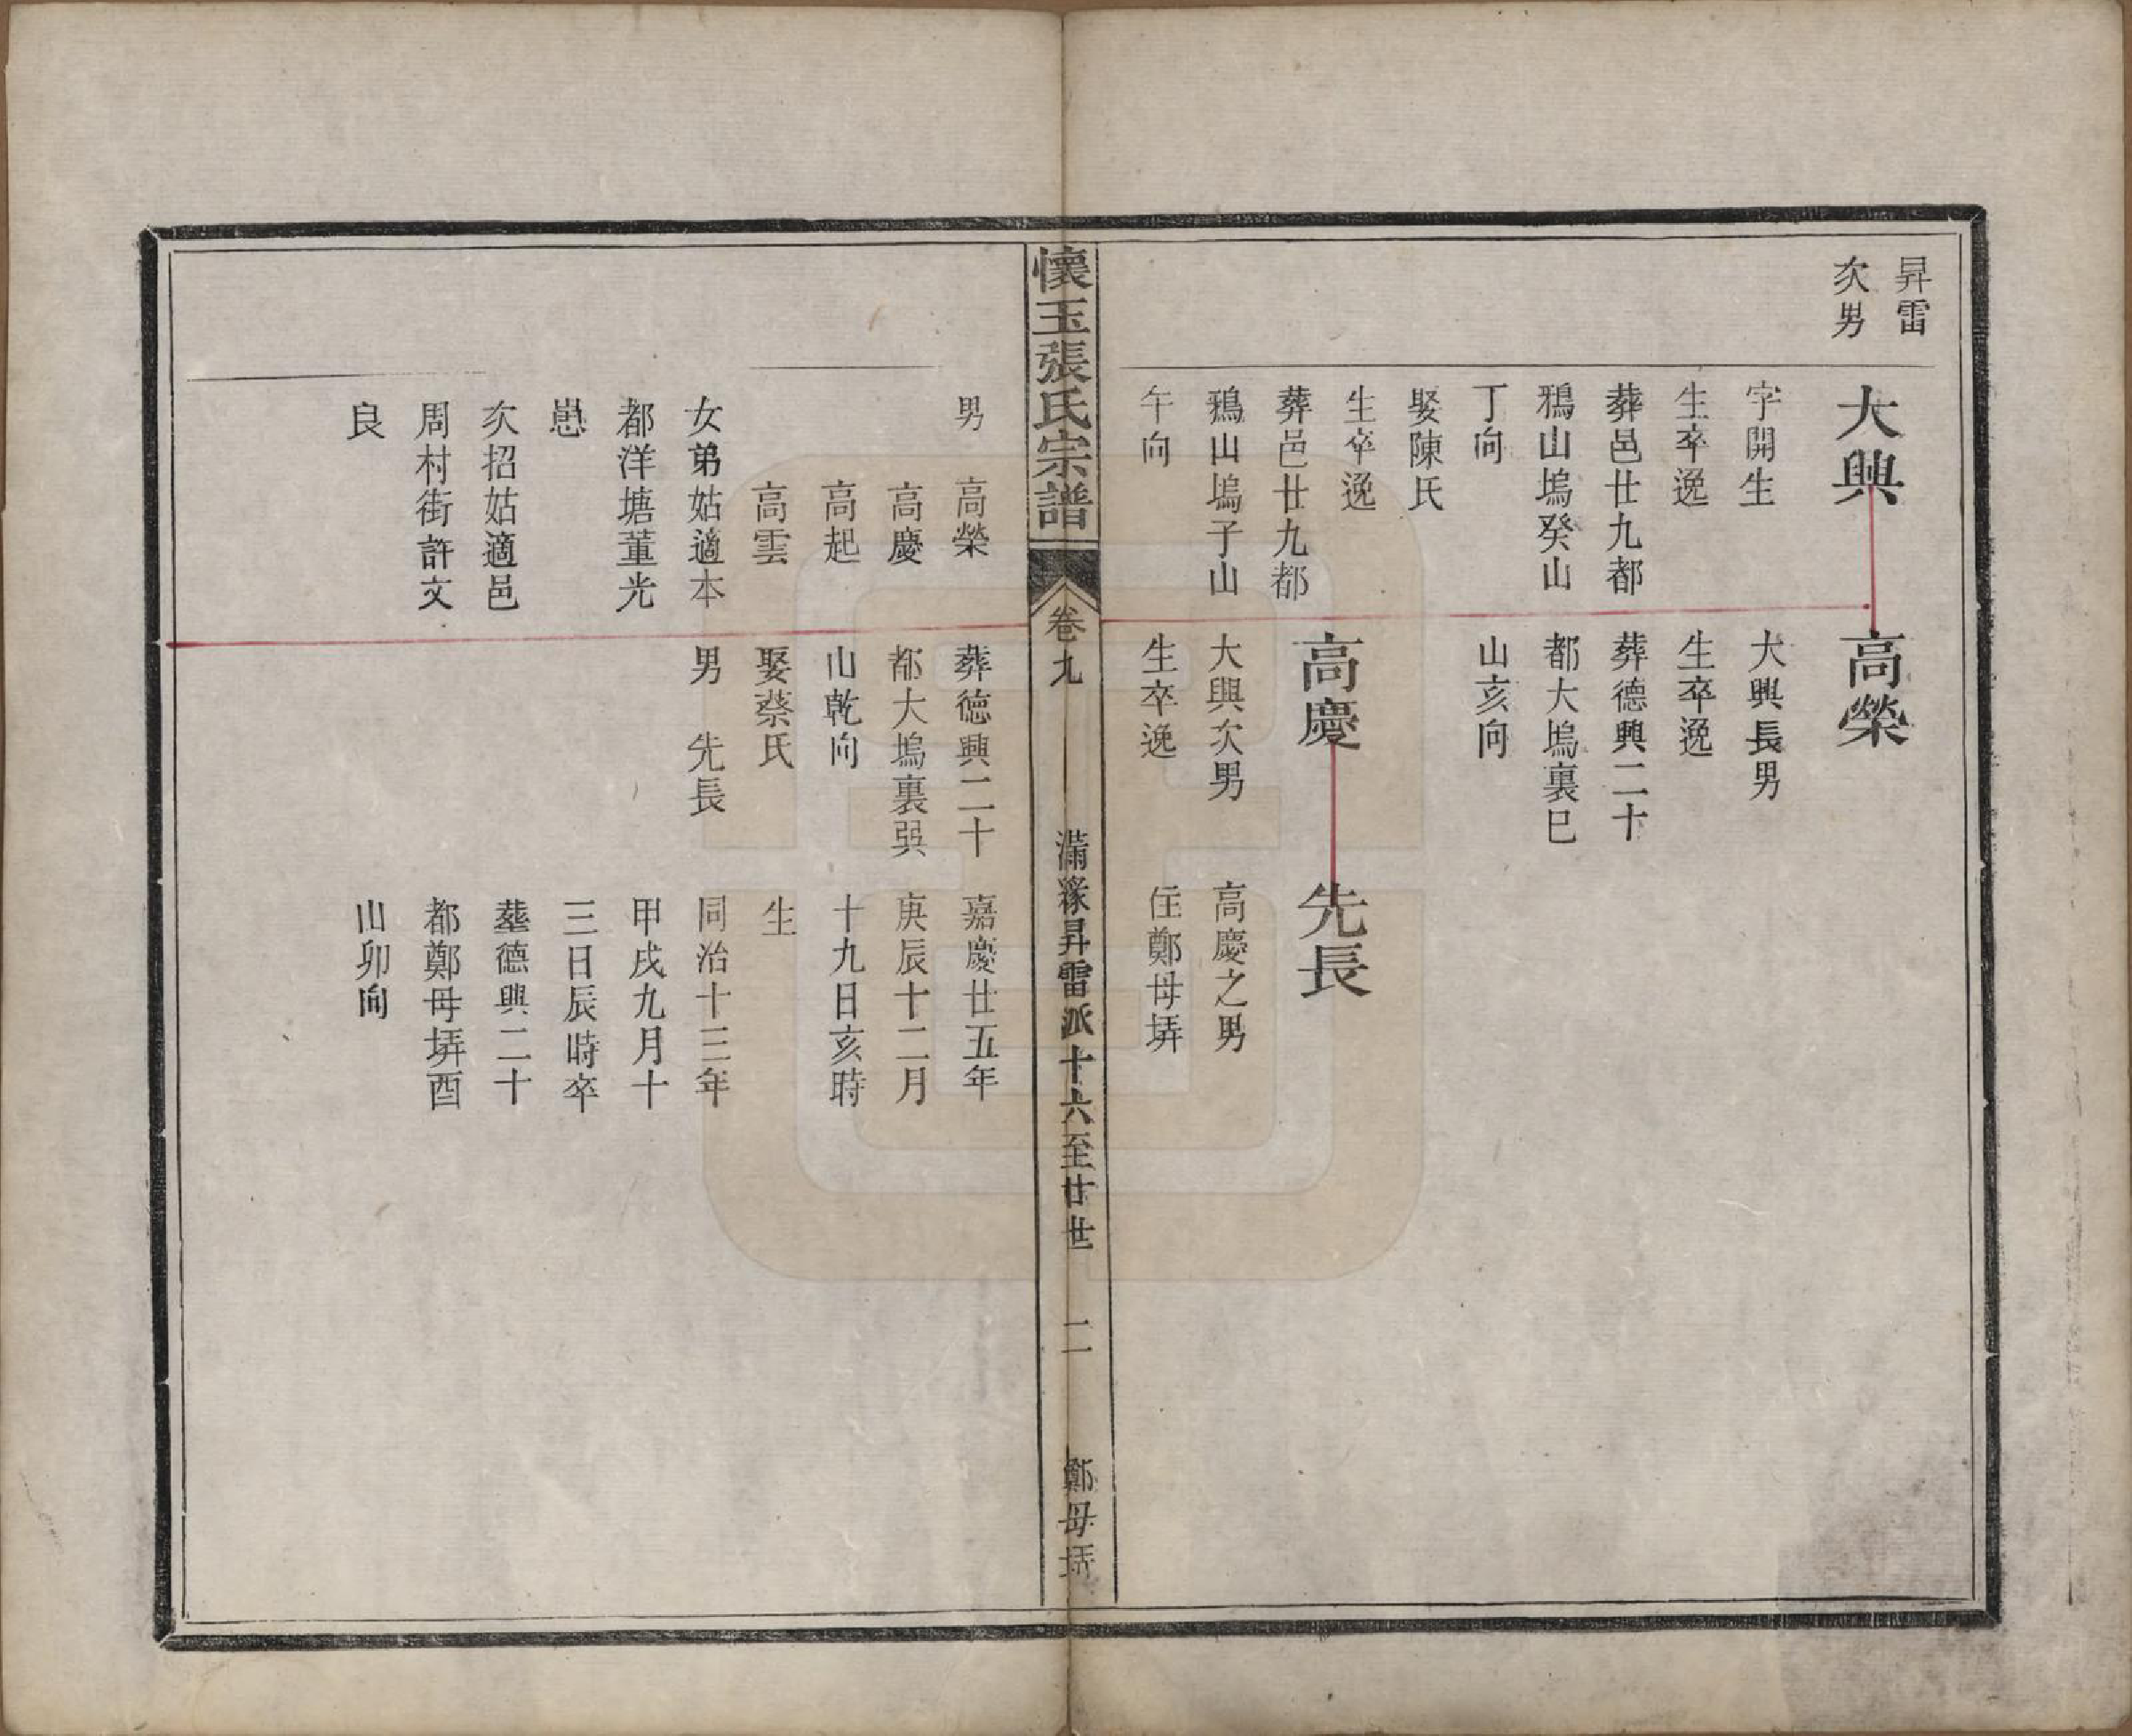 昇雷
次男
大興
字開生
生卒逸
葬邑廿九都
鴉山塢癸山
丁向
娶陳氏
生卒逸
葬邑廿九都
鴉山塢子山
午向
高榮
大興長男
生卒逸
葬德興二十
都大塢裏巳
山亥向
高慶
大興次男
生卒逸
先長
高慶之男
住鄭母塝
懷玉張氏宗譜
卷九
滿緣昇雷派十六至廿世
二
鄭母塝
男 高榮
高慶
高起
高雲
女弟姑適本
都洋塘董光
次招姑適邑
周村街許文
良
葬德興二十
都大塢裏巽
山乾向
娶蔡氏
男 先長
嘉慶廿五年
庚辰十二月
十九日亥時
生
同治十三年
甲戌九月十
三日辰時卒
塟德興二十
都鄭母塝酉
山卯向